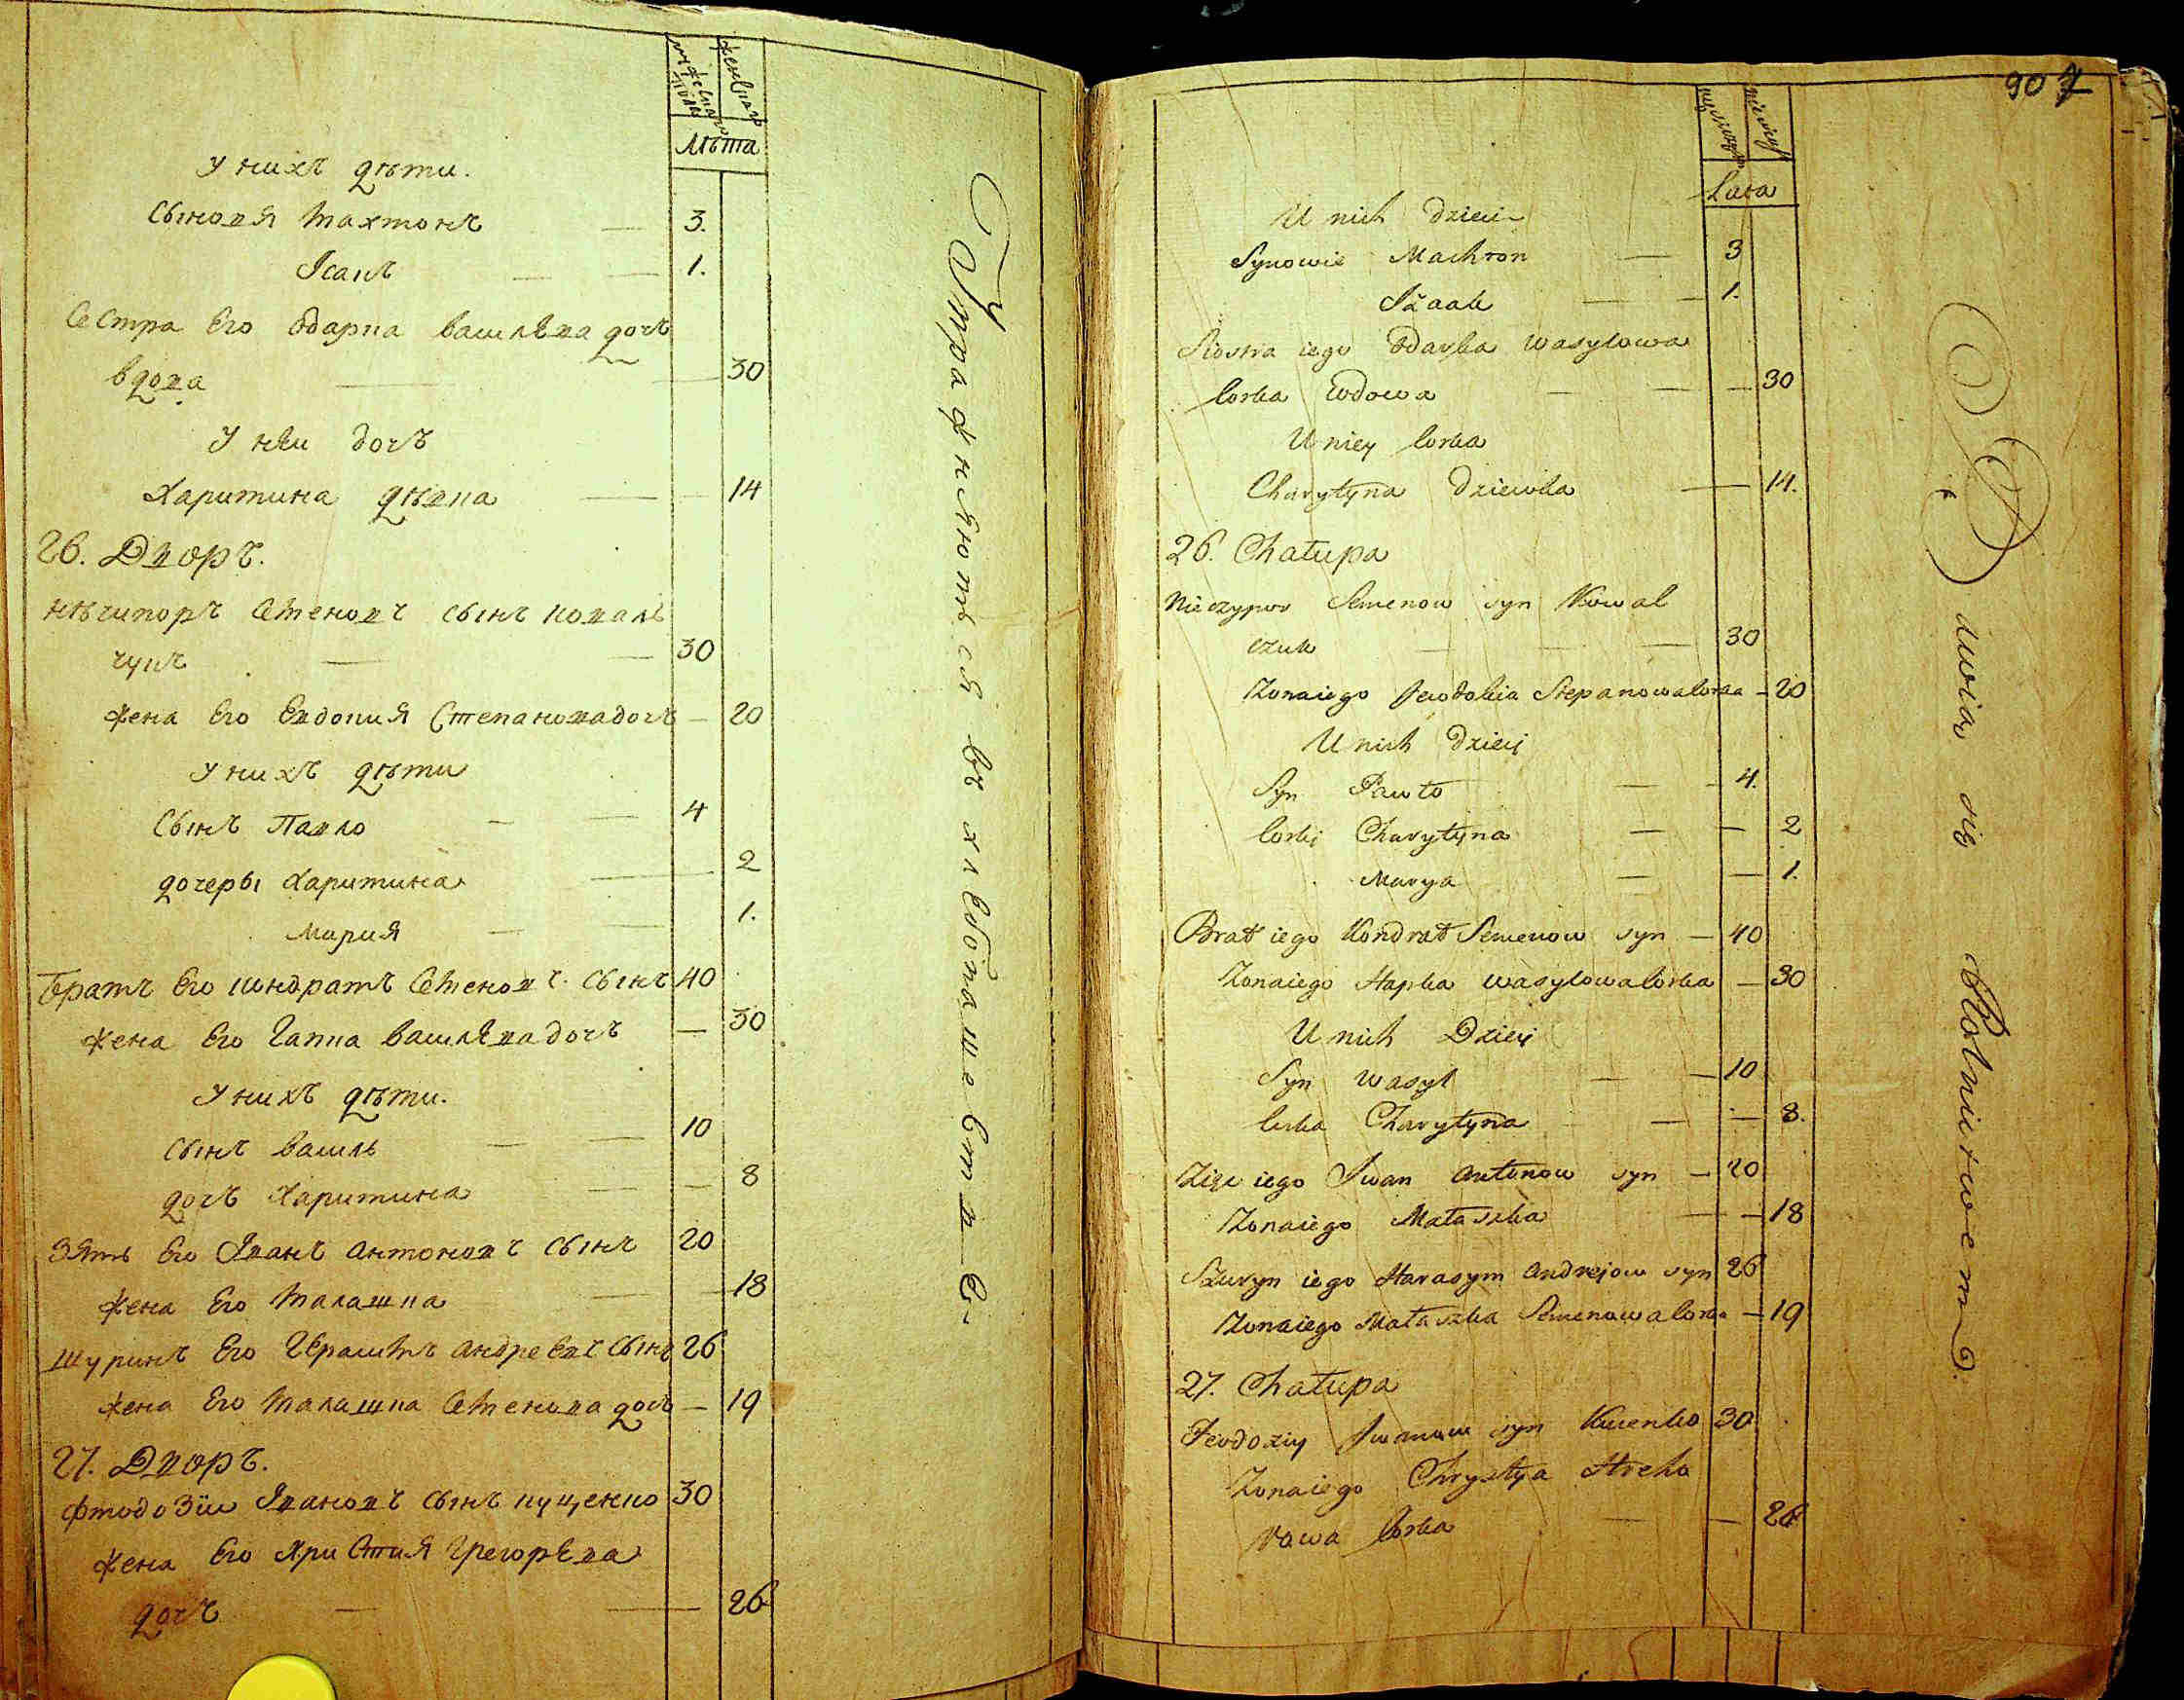 мужеска пола
женска
Лѣта
У нихъ дѣти.
Сыновя Махтонъ 3.
Ісакъ 1.
Сестра Его Одарка васильева дочь
вдова 30
У неи дочь
Харитина дѣвка 14
26. Дворъ.
нѣчипоръ Семеновъ сынъ коваль
чукъ 30
жена Его Евдокия Степановадочь 20
У нихъ дѣти
Сынъ Павло 4
дочеры Харитина 2
Мария 1.
Братъ Его кондратъ Семеновъ сынъ 40
жена Его Гапка васильевадочь 30
У нихъ дѣти.
Сынъ василь 10
дочь Харитина 8
Зять Его Іванъ антоновъ Сынъ 20
жена Его Малашка 18
шуринъ Его Герасимъ андреевъ Сынъ 26
жена Его Малашка Семенова дочь 19
27. Дворъ.
Феодозіи Івановъ сынъ куценко 30
жена Его Христия Григорьева
дочь 26
Упражняютъся въ хлебопашестве
90
Lata
U nich dzieci
Synowie Machton 3
Izaak 1.
Siostra iego Odarka wasylowa
Corka Wdowa 30
U niey Corka
Charytyna Dziewka 14.
26. Chałupa
Nieczypor Semenow syn Kowal
czuk 30
Zonaiego Jewdokia Stepanowa Corka 20
U nich Dzieci
Syn Pawło 4.
Corki Charytyna 2
Marya 1.
Brat iego Kondrat Semenow syn 40
Zonaiego Hapka wasylowa Corka 30
U nich Dzieci
Syn wasyl 10
Corka Charytyna 8.
Zięc iego Iwan Antonow syn 20
Zonaiego Małaszka 18
Szuryn iego Harasym Andrejow syn 26
Zonaiego Małaszka Semenowa Corka 19
27. Chałupa
Feodoziy Iwanow syn Kucenko 30
Zonaiego Chrystya Hreho
rowa Corka 26
Bawią się Rolnictwem